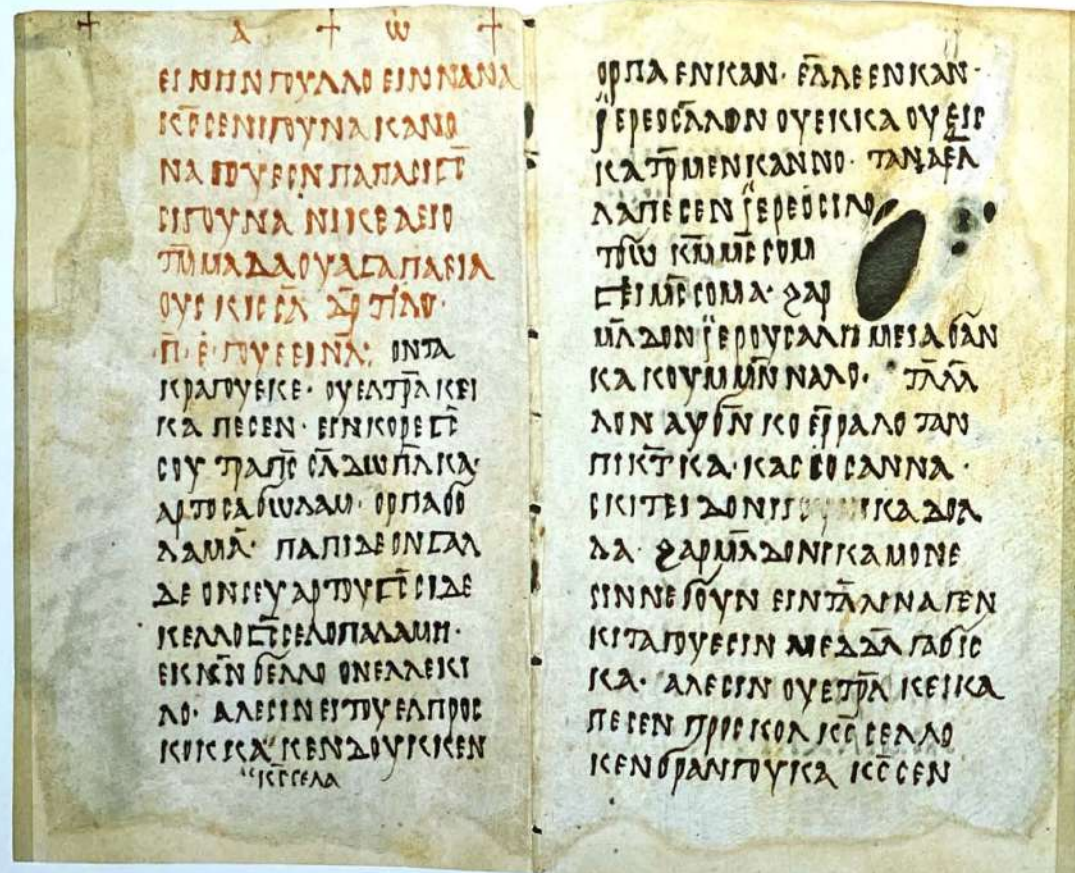 + ⲁ + ⲱ̇ +
ⲉⲓⲛⲛⲓⲛ ⲅⲟⲩⲗⲗⲟ ⲉⲓⲛⲛⲁⲛⲁ
ⲕ̅ⲥ̅ⲥⲉⲛⲓⲅⲟⲩⲛⲁ ⲕⲁⲛⲟ
ⲛⲁ ⲅⲟⲩⲉⲥⲛ ⲡⲁⲡⲁⲥⲓⲅⲧ̅
ⲥⲓⲅⲟⲩⲛⲁ ⲛⲓⲕⲉⲁⲉⲓⲟ
ⲧⲙ̅ⲙⲁ ⲇⲁⲟⲩⲁⲥⲁ ⲡⲁⲉⲓⲁ
ⲟⲩⲥ ⲕⲓⲥⲥⲗ̅
·ⲡ̅· ⲉ̅· ⲅⲟⲩⲉⲥⲓⲛⲁ̅: ⲟⲛⲧⲁ
ⲕⲣⲁⲅⲟⲩⲉⲕⲉ· ⲟⲩⲉⲗⲧⲣ̅ⲁ ⲕⲉⲓ
ⲕⲁ ⲡⲉⲥⲉⲛ· ⲉⲓⲛ ⲕⲟⲣⲉⲅⲧ̅
ⲥⲟⲩ ⲧⲣⲁⲡⲥ̅ ⲥⲗ̅ⲇⲱ ⲡⲗ̅ⲕⲁ·
ⲁⲣⲧⲟⲥⲁϭⲱⲗⲁⲙ· ⲟⲣⲡⲁϭⲟ
ⲗⲁⲙⲁ̅· ⲡⲁⲡⲓⲇⲉ ⲟⲛⲅⲁⲗ
ⲇⲉ ⲟⲛⲥⲉⲩⲁⲣⲧⲟⲩⲅⲧ̅ⲥⲓⲇⲉ
ⲕⲉⲗⲗⲟ ⲅⲧ̅ⲥⲉⲗⲟ ⲡⲁⲗⲁⲙⲏ·
ⲉⲓⲕⲛ̅ ϭⲉⲗⲗⲟ ⲟⲛⲉⲗⲗⲉⲓⲕⲓ
ⲗⲟ· ⲁⲗⲉⲥⲓⲛ ⲉⲓⲅⲟⲩⲉⲗ ⲡⲣⲟⲥ
ⲕⲟⲕⲕⲁ ⲕⲉⲛⲇⲟⲩⲕⲕⲉⲛ
ⲕ̅ⲥ̅ⲥⲉⲗⲁ
ⲟⲣⲡⲁ ⲉⲛⲕⲁⲛ· ⲉⲗ̅ⲗⲉ ⲉⲛⲕⲁⲛ·
ⲓ̈ⲉⲣⲉⲟⲥⲁ̅ⲗⲗⲟⲛ ⲟⲩⲉⲕⲕⲁ ⲟⲩⲉⲓⲥ
ⲕⲁ ⲧⲣ̅ⲙⲉⲛⲕⲁⲛⲛⲟ· ⲧⲁⲛ ⲁⲉⲗ̅
ⲗⲁ ⲡⲉⲥⲉⲛ ⲓ̈ⲉⲣⲉⲟⲥⲓ
ⲕⲙ̅ⲙⲥ̅ⲥⲟⲙ
ⲅⲧ̅ⲉⲓⲙⲥ̅ⲥⲟⲙⲁ· ϩⲁⲣ
ⲙⲗ̅ⲇⲟⲛ ⲓ̈ⲉⲣⲟⲩⲥⲁⲗⲙ̅ ⲙⲉⲓⲁϭⲁⲛ̅
ⲕⲁ ⲕⲟⲩⲙⲙⲛ̅ⲛⲁⲗⲟ· ⲧⲗ̅ⲗⲁ̅
ⲗⲟⲛ ⲁⲩϭⲛ̅ ⲕⲟ ⲉⲣ̅ⲣⲁⲗⲟ ⲧⲁⲛ
ⲡⲓⲕⲧ̅ⲕⲁ· ⲕⲁⲥⲥⲟⲥⲁⲛⲛⲁ·
ⲥⲕⲓⲧⲉⲓⲇⲟⲛ ⲕⲁ ⲇⲟⲗ
ⲗⲁ· ϩⲁⲣⲙⲗ̅ⲇⲟⲛⲓⲕⲁ ⲙⲟⲛⲉ
ⲥⲓⲛⲛⲉϭⲟⲩⲛ ⲉⲓⲛ ⲧⲗ̅ⲗⲓⲛⲁ ⲅⲉⲛ
ⲕⲓⲧⲁⲅⲟⲩⲉⲥⲓⲛ ⲙⲉⲇⲇⲗ̅ ⲅⲁϭⲓⲥ
ⲕⲁ· ⲁⲗⲉⲥⲓⲛ ⲟⲩⲉⲧⲣ̅ⲗ ⲕⲉⲓⲕⲁ
ⲡⲉⲥⲉⲛ ⲡⲣⲟⲥⲕⲟⲗ ⲕ̅ⲥ̅ⲥⲉⲗⲗⲟ
ⲕⲉⲛϭⲣⲁⲛⲅⲟⲩⲕⲁ ⲕ̅ⲥ̅ⲥⲉⲛ